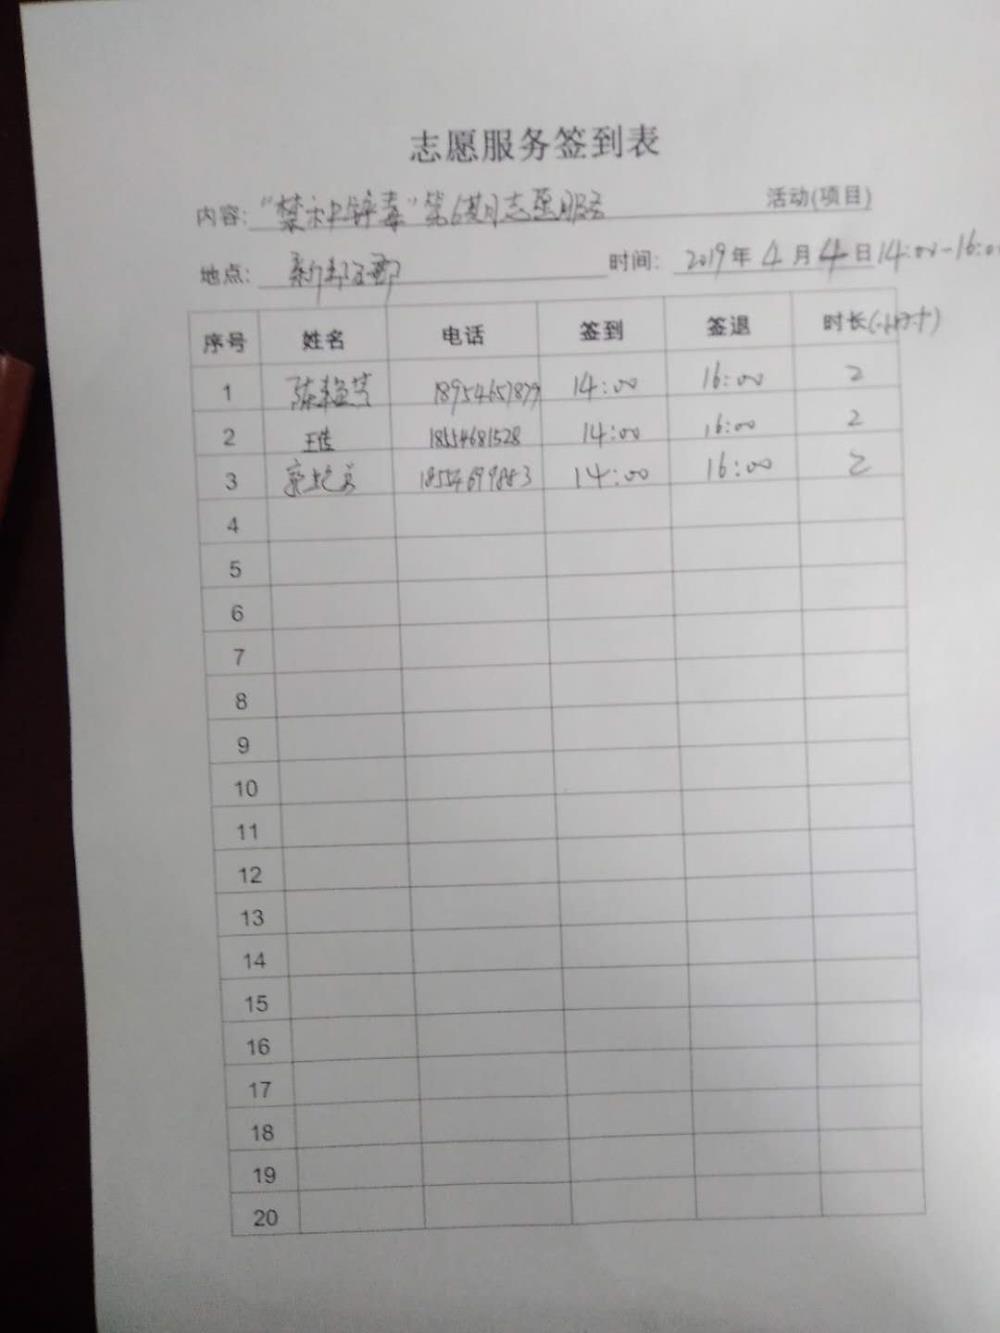 志愿服务签到表
内容: 第6期志愿服务 活动(项目)
地点: 时间: 2019年4月4日14:00-16:00
序号 姓名 电话 签到 签退 时长(小时)
1 14:00 16:00 2
2 王佳 18554681528 14:00 16:00 2
3 14:00 16:00 2
4
5
6
7
8
9
10
11
12
13
14
15
16
17
18
19
20